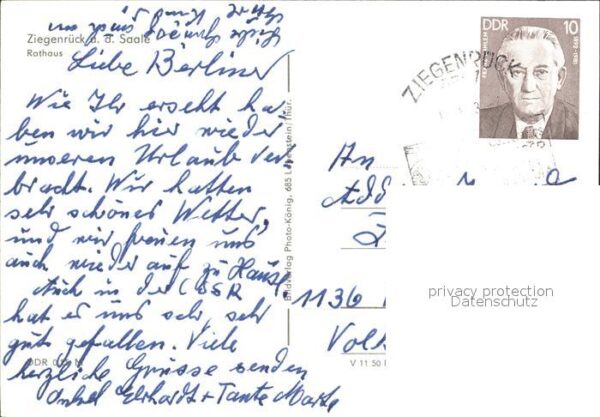 Ziegenrück a. d. Saale
Rathaus
Liebe Berliner
Wie Ihr erseht ha,
ben wir hier wieder
unseren Urlaub ver
bracht. Wir hatten
sehr schönes Wetter,
und wir freuen uns
auch wieder auf zu Hause.
Auch in der CSSR
hat es uns sehr, sehr
gut gefallen. Viele
herzliche Grüsse senden
Onkel Ehrhardt + Tante Marta
DDR
Bildverlag Photo-König, 685 Lobenstein/Thür.
DDR 10
ZIEGENRÜCK
An
1136
V 11 50
privacy protection
Datenschutz